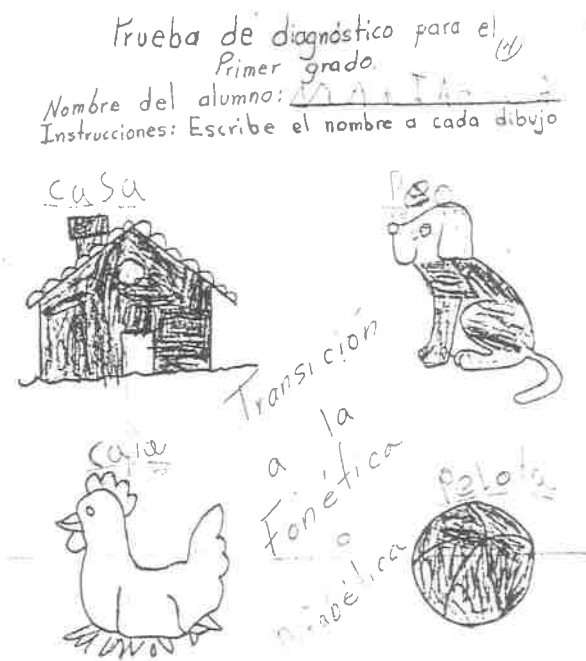 Prueba de diagnóstico para el
Primer grado.
Nombre del alumno:
Instrucciones: Escribe el nombre a cada dibujo
casa
Transición
a la
Fonética
o
pelota